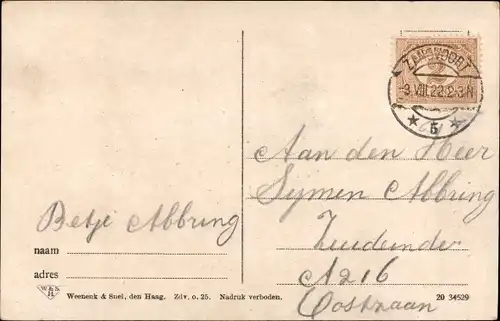 ZANDVOORT
-3.VIII.22.2-3N
★ 5 ★
Aan den Heer
Sijmen Abbring
Zuideinder
A 216
Oostzaan
Betje Abbring
naam
adres
Weenenk & Snel, den Haag. Zdv. o. 25. Nadruk verboden.
20 34529